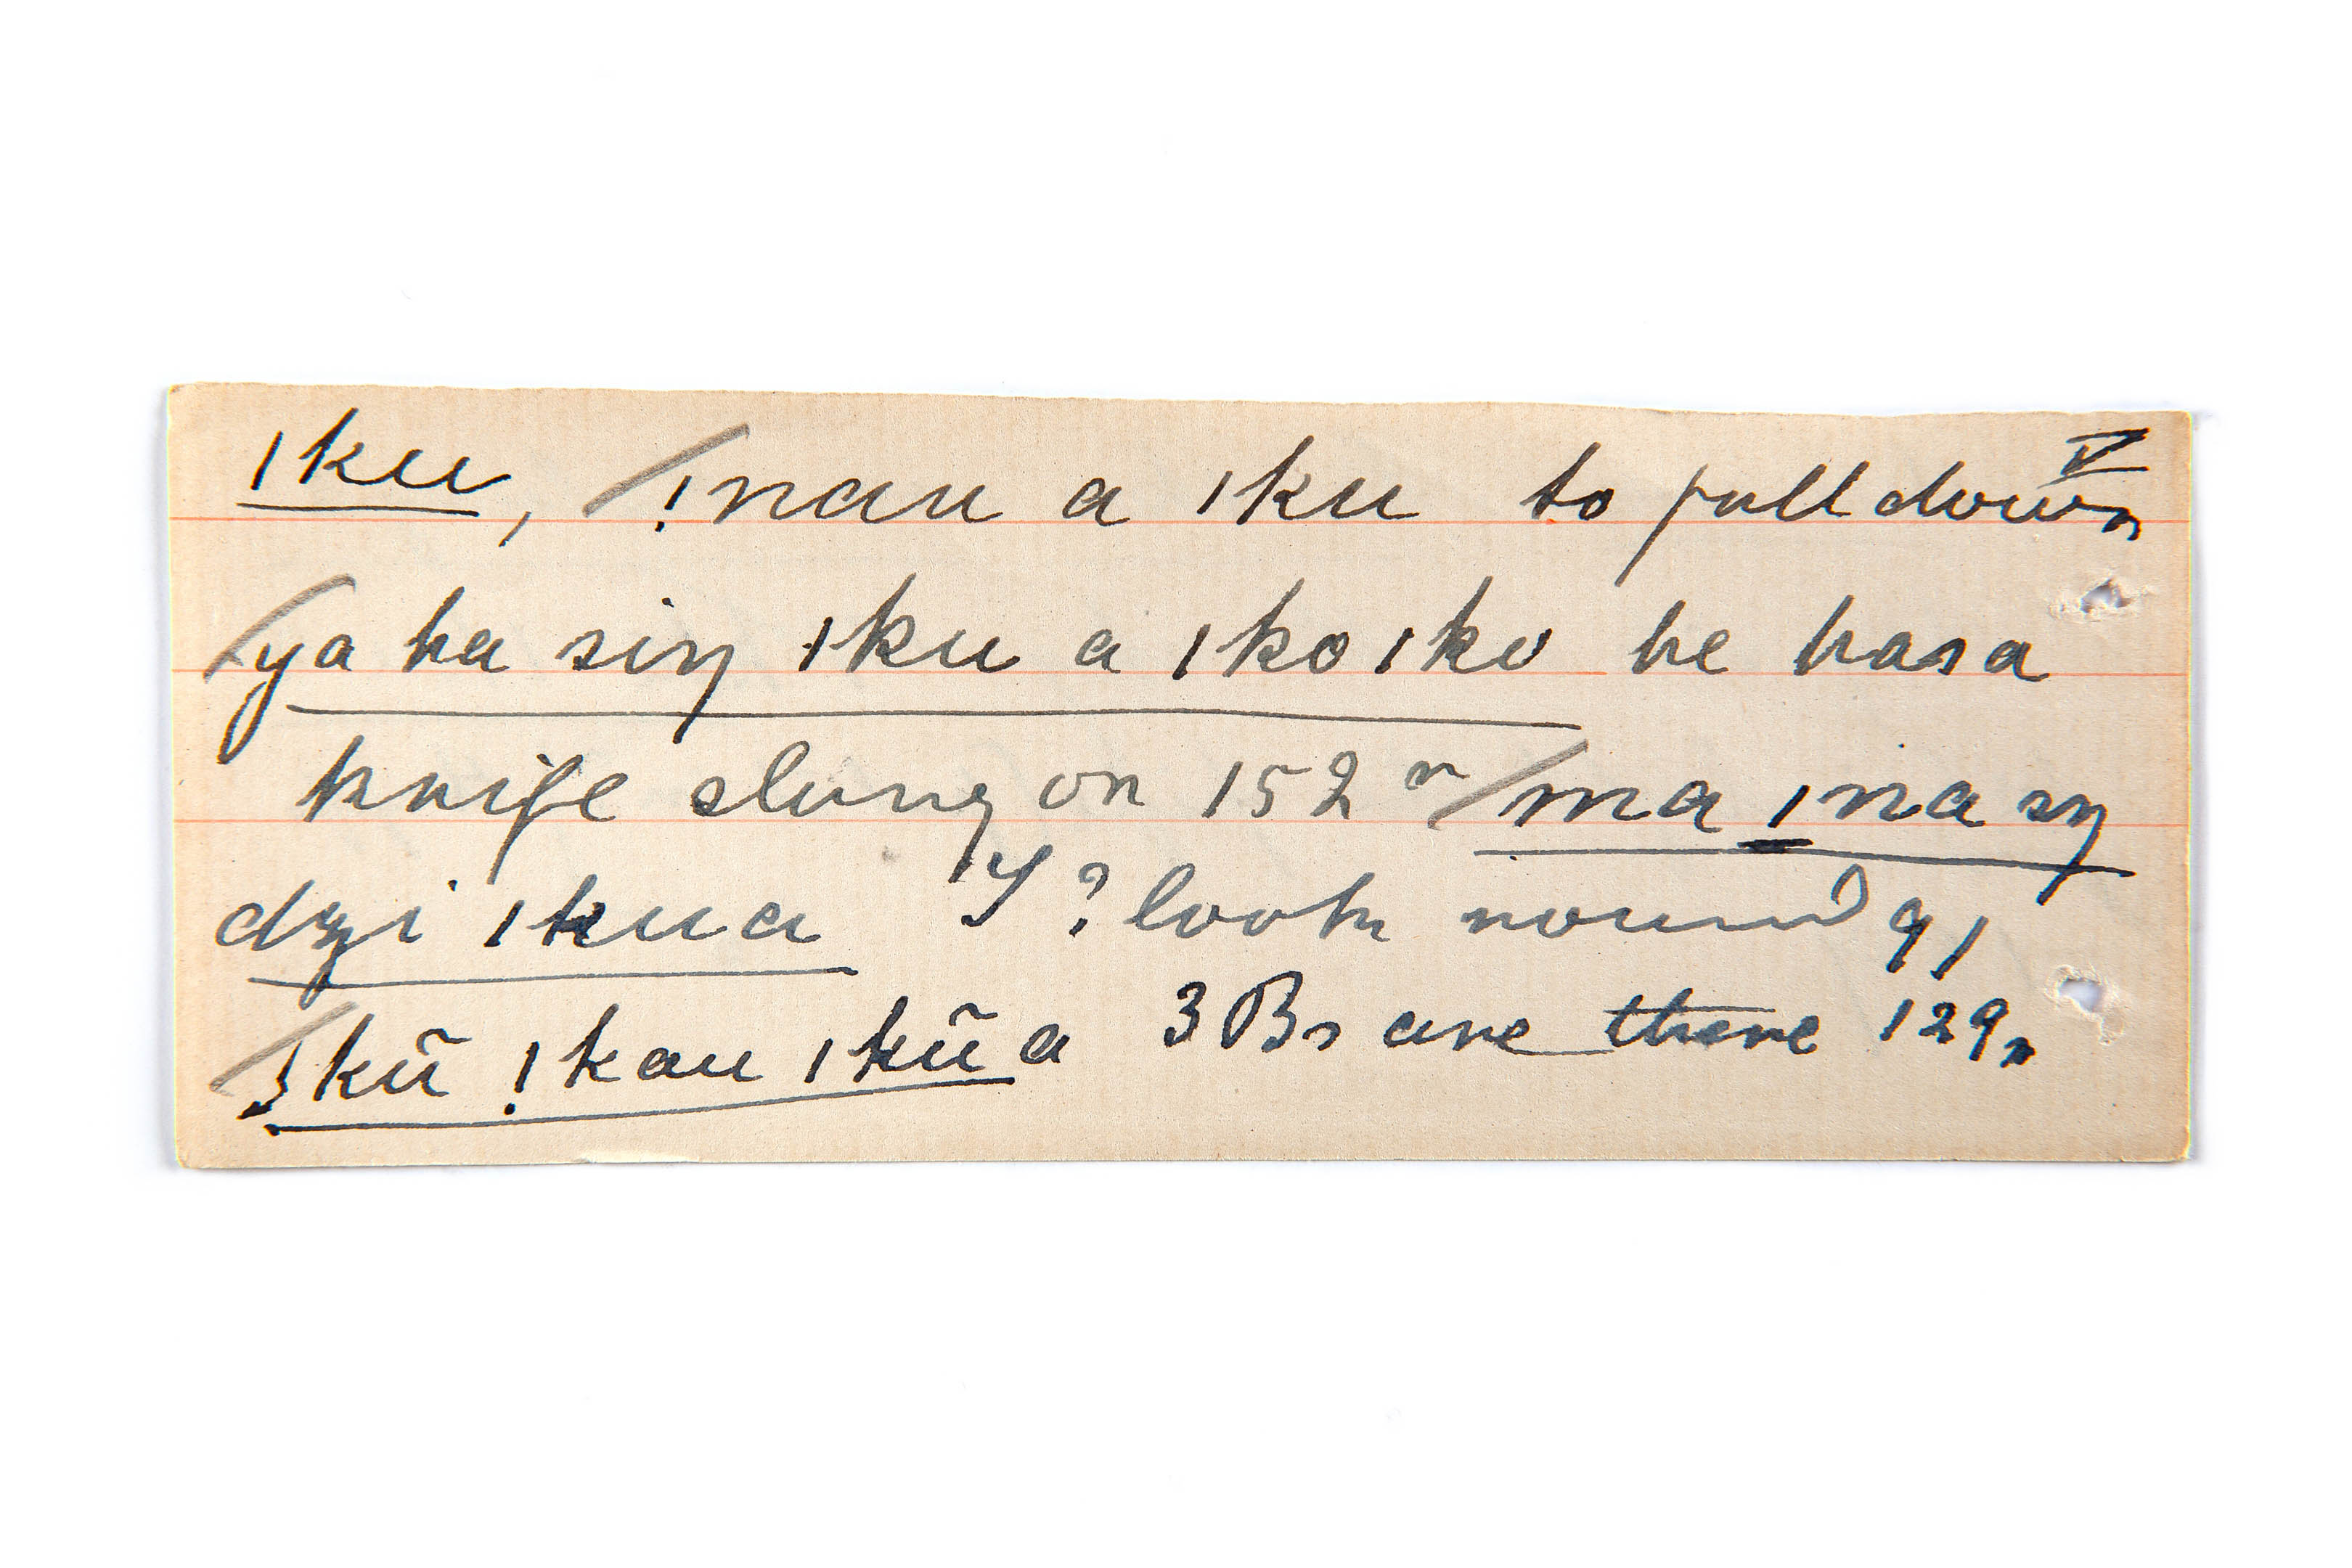 ǀku, / ǃnau a ǀku to pull down V
/ ya ha siŋ ǀku a ǀko ǀko he has a
knife slung on 152 r / ma ǀna sŋ
dzi ǀkua I ? look round 91
/ ǃkũ ǃkau ǀkũ a 3 Bs are there 129r